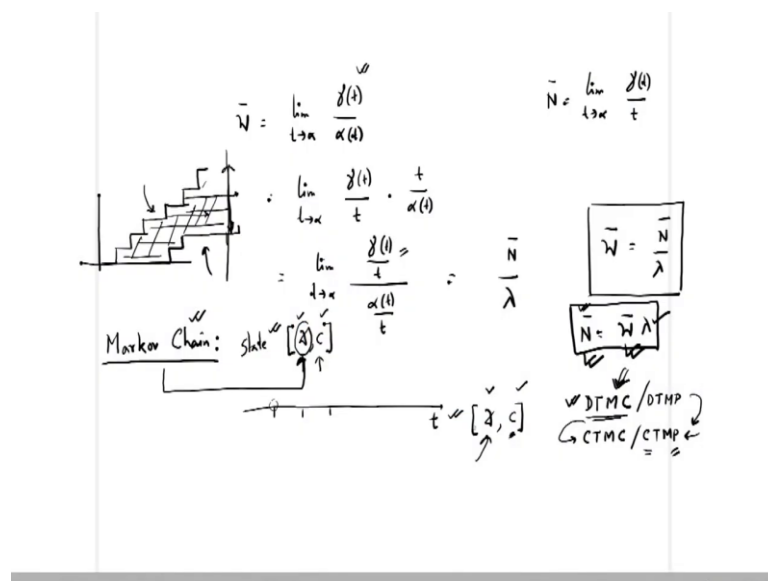 W̄ = lim t→∞ γ(t)/α(t)
N̄ = lim t→∞ γ(t)/t
= lim t→∞ γ(t)/t · t/α(t)
= lim t→∞ (γ(t)/t)/(α(t)/t) = N̄/λ
W̄ = N̄/λ
N̄ = W̄ λ
Markov Chain: State [ , C]
t [ , C]
DTMC/DTMP
CTMC/CTMP